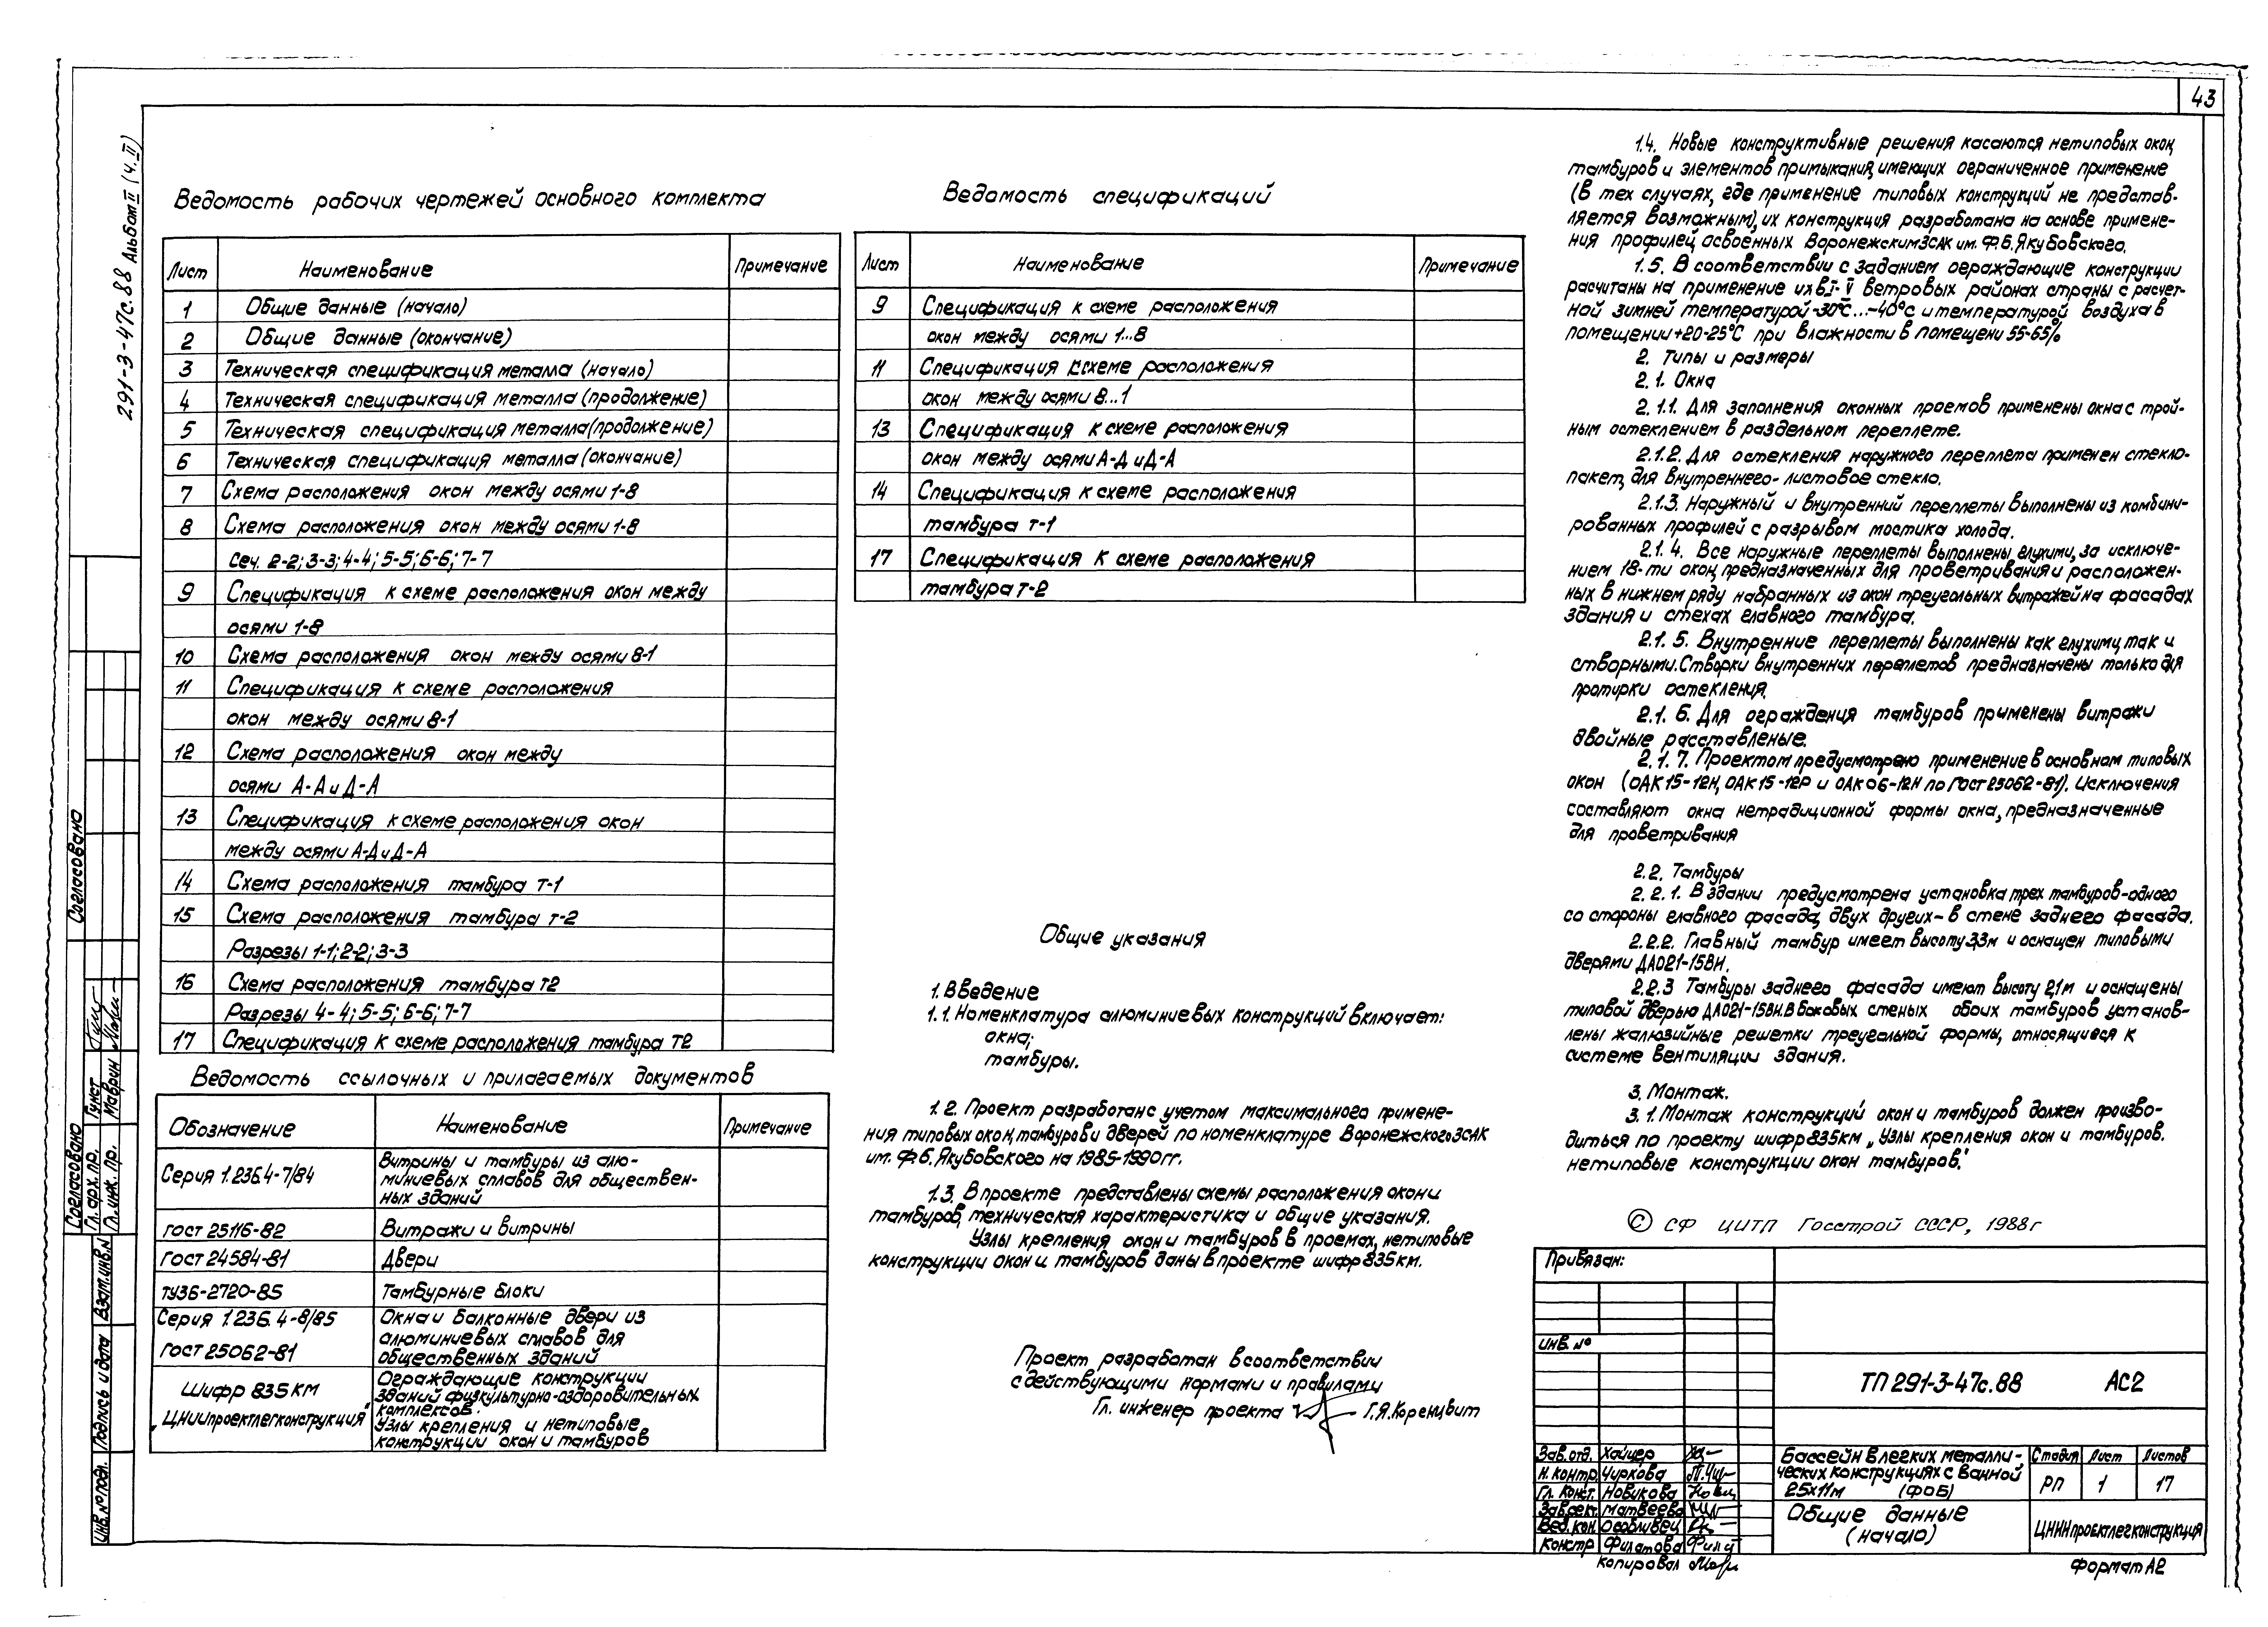 43
291-3-47с.88 Альбом II (ч. II)
Ведомость рабочих чертежей основного комплекта
Лист Наименование Примечание
1 Общие данные (начало)
2 Общие данные (окончание)
3 Техническая спецификация металла (начало)
4 Техническая спецификация металла (продолжение)
5 Техническая спецификация металла (продолжение)
6 Техническая спецификация металла (окончание)
7 Схема расположения окон между осями 1-8
8 Схема расположения окон между осями 1-8
Сеч. 2-2; 3-3; 4-4; 5-5; 6-6; 7-7
9 Спецификация к схеме расположения окон между
осями 1-8
10 Схема расположения окон между осями 8-1
11 Спецификация к схеме расположения
окон между осями 8-1
12 Схема расположения окон между
осями А-А и Д-А
13 Спецификация к схеме расположения окон
между осями А-Д и Д-А
14 Схема расположения тамбура Т-1
15 Схема расположения тамбура Т-2
Разрезы 1-1; 2-2; 3-3
16 Схема расположения тамбура Т2
Разрезы 4-4; 5-5; 6-6; 7-7
17 Спецификация к схеме расположения тамбура Т2
Ведомость ссылочных и прилагаемых документов
Обозначение Наименование Примечание
Серия 1.236.4-7/84 Витрины и тамбуры из алю-
миниевых сплавов для обществен-
ных зданий
ГОСТ 25116-82 Витражи и витрины
ГОСТ 24584-81 Двери
ТУ36-2720-85 Тамбурные блоки
Серия 1.236.4-8/85 Окна и балконные двери из
алюминиевых сплавов для
ГОСТ 25062-81 общественных зданий
Шифр 835 КМ Ограждающие конструкции
зданий физкультурно-оздоровительных
комплексов.
"ЦНИИпроектлегконструкция" Узлы крепления и нетиповые
конструкции окон и тамбуров
Ведомость спецификаций
Лист Наименование Примечание
9 Спецификация к схеме расположения
окон между осями 1...8
11 Спецификация к схеме расположения
окон между осями 8...1
13 Спецификация к схеме расположения
окон между осями А-Д и Д-А
14 Спецификация к схеме расположения
тамбура Т-1
17 Спецификация к схеме расположения
тамбура Т-2
Общие указания
1. Введение
1.1. Номенклатура алюминиевых конструкций включает:
окна;
тамбуры.
1.2. Проект разработан с учетом максимального примене-
ния типовых окон, тамбуров и дверей по номенклатуре Воронежского ЗСАК
им. Ф.Б. Якубовского на 1985-1990 гг.
1.3. В проекте представлены схемы расположения окон и
тамбуров, техническая характеристика и общие указания.
Узлы крепления окон и тамбуров в проемах, нетиповые
конструкции окон и тамбуров даны в проекте шифр 835 км.
Проект разработан в соответствии
с действующими нормами и правилами
Гл. инженер проекта Г.Я. Коренцвит
1.4. Новые конструктивные решения касаются нетиповых окон,
тамбуров и элементов примыкания, имеющих ограниченное применение
(в тех случаях, где применение типовых конструкций не представ-
ляется возможным), их конструкция разработана на основе примене-
ния профилей, освоенных Воронежским ЗСАК им. Ф.Б. Якубовского.
1.5. В соответствии с заданием ограждающие конструкции
расчитаны на применение их в I-V ветровых районах страны с расчет-
ной зимней температурой -30°С...-40°С и температурой воздуха в
помещении +20-25°С при влажности в помещени 55-65%
2. Типы и размеры
2.1. Окна
2.1.1. Для заполнения оконных проемов применены окна с трой-
ным остеклением в раздельном переплете.
2.1.2. Для остекления наружного переплета применен стекло-
пакет, для внутреннего - листовое стекло.
2.1.3. Наружный и внутренний переплеты выполнены из комбини-
рованных профилей с разрывом мостика холода.
2.1.4. Все наружные переплеты выполнены глухими, за исключе-
нием 18-ти окон, предназначенных для проветривания и расположен-
ных в нижнем ряду набранных из окон треугольных витражей на фасадах
здания и стехах главного тамбура.
2.1.5. Внутренние переплеты выполнены как глухими, так и
створными. Створки внутренних переплетов предназначены только для
протирки остекления.
2.1.6. Для ограждения тамбуров применены витражи
двойные расставленые.
2.1.7. Проектом предусмотрено применение в основном типовых
окон (ОАК 15-12Н, ОАК 15-12Р и ОАК 06-12Н по ГОСТ 25062-81). Исключения
составляют окна нетрадиционной формы окна, предназначенные
для проветривания
2.2. Тамбуры
2.2.1. В здании предусмотрена установка трех тамбуров - одного
со стороны главного фасада, двух других - в стене заднего фасада.
2.2.2. Главный тамбур имеет высоту 3,3м и оснащен типовыми
дверями ДАО21-15ВН.
2.2.3 Тамбуры заднего фасада имеют высоту 2,1м и оснащены
типовой дверью ДАО21-15ВН. В боковых стеных обоих тамбуров установ-
лены жалюзийные решетки треугольной формы, относящиеся к
системе вентиляции здания.
3. Монтаж.
3.1. Монтаж конструкций окон и тамбуров должен произво-
диться по проекту шифр 835км „Узлы крепления окон и тамбуров.
нетиповые конструкции окон тамбуров."
© СФ ЦИТП Госстрой СССР, 1988г
Привязан:
ИНВ. №
ТП 291-3-47с.88 АС2
Зав. отд. Хайцер
Н. контр. Чиркова
Гл. конст. Новикова
Зав. сект. Матвеева
Вед. кон. Особливец
Констр Филатова
Бассейн в легких металли-
ческих конструкциях с ванной
25х11м (ФОБ)
Стадия Лист Листов
РП 1 17
Общие данные
(начало)
ЦНИИпроектлегконструкция
Копировал
Формат А2
Согласовано
Согласовано
Гл. арх. пр. Гунст
Гл. инж. пр. Маврин
Взам. инв. №
Подпись и дата
Инв. № подл.